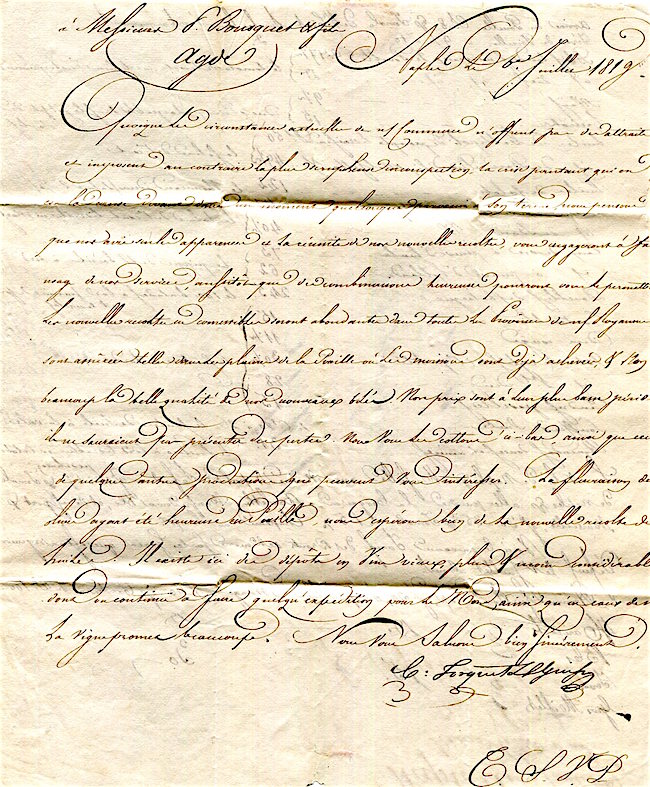 à Messieurs P. Bousquet & fils
Agde
Naples Le 6 Juillet 1819.
Quoique les circonstances actuelles de n/ Commerce n'offrent pas des attraits
et imposent au contraire la plus scrupuleuse circonspection, la crise pourtant qui en
est la nous pensons
que nos avis sur les apparences et la réussite de nos nouvelles recoltes, vous engageront à fa
usage de nos services, aussitôt que des combinaisons heureuses pourront vous le permett
Les nouvelles recoltes en comestibles seront abondantes dans toutes Les Provinces de n/ Royaume
sont telles dans les plaines de la Pouille où Les moissons sont déja achevées, & l'on
beaucoup la belle qualité de nos nouveaux bleds. Nos prix sont à leur plus bas période
ils ne sauraient présenter des pertes. Nous Vous Les cottons ci-bas, ainsi que ceux
de quelques autres productions qui peuvent Vous intéresser. La fleuraison des
olives ayant été heureuse en Pouille, nous espérons bien de la nouvelle recolte des
huiles. Il existe ici des dépôts en Vins vieux, plus & moins considérables
dont on continue à faire quelqu'expédition pour le Nord, ainsi qu'en eaux de v
La vigne promet beaucoup. Nous Vous Saluons bien Sincèrement.
C: Forquet & Giusso
T. S. V. P.